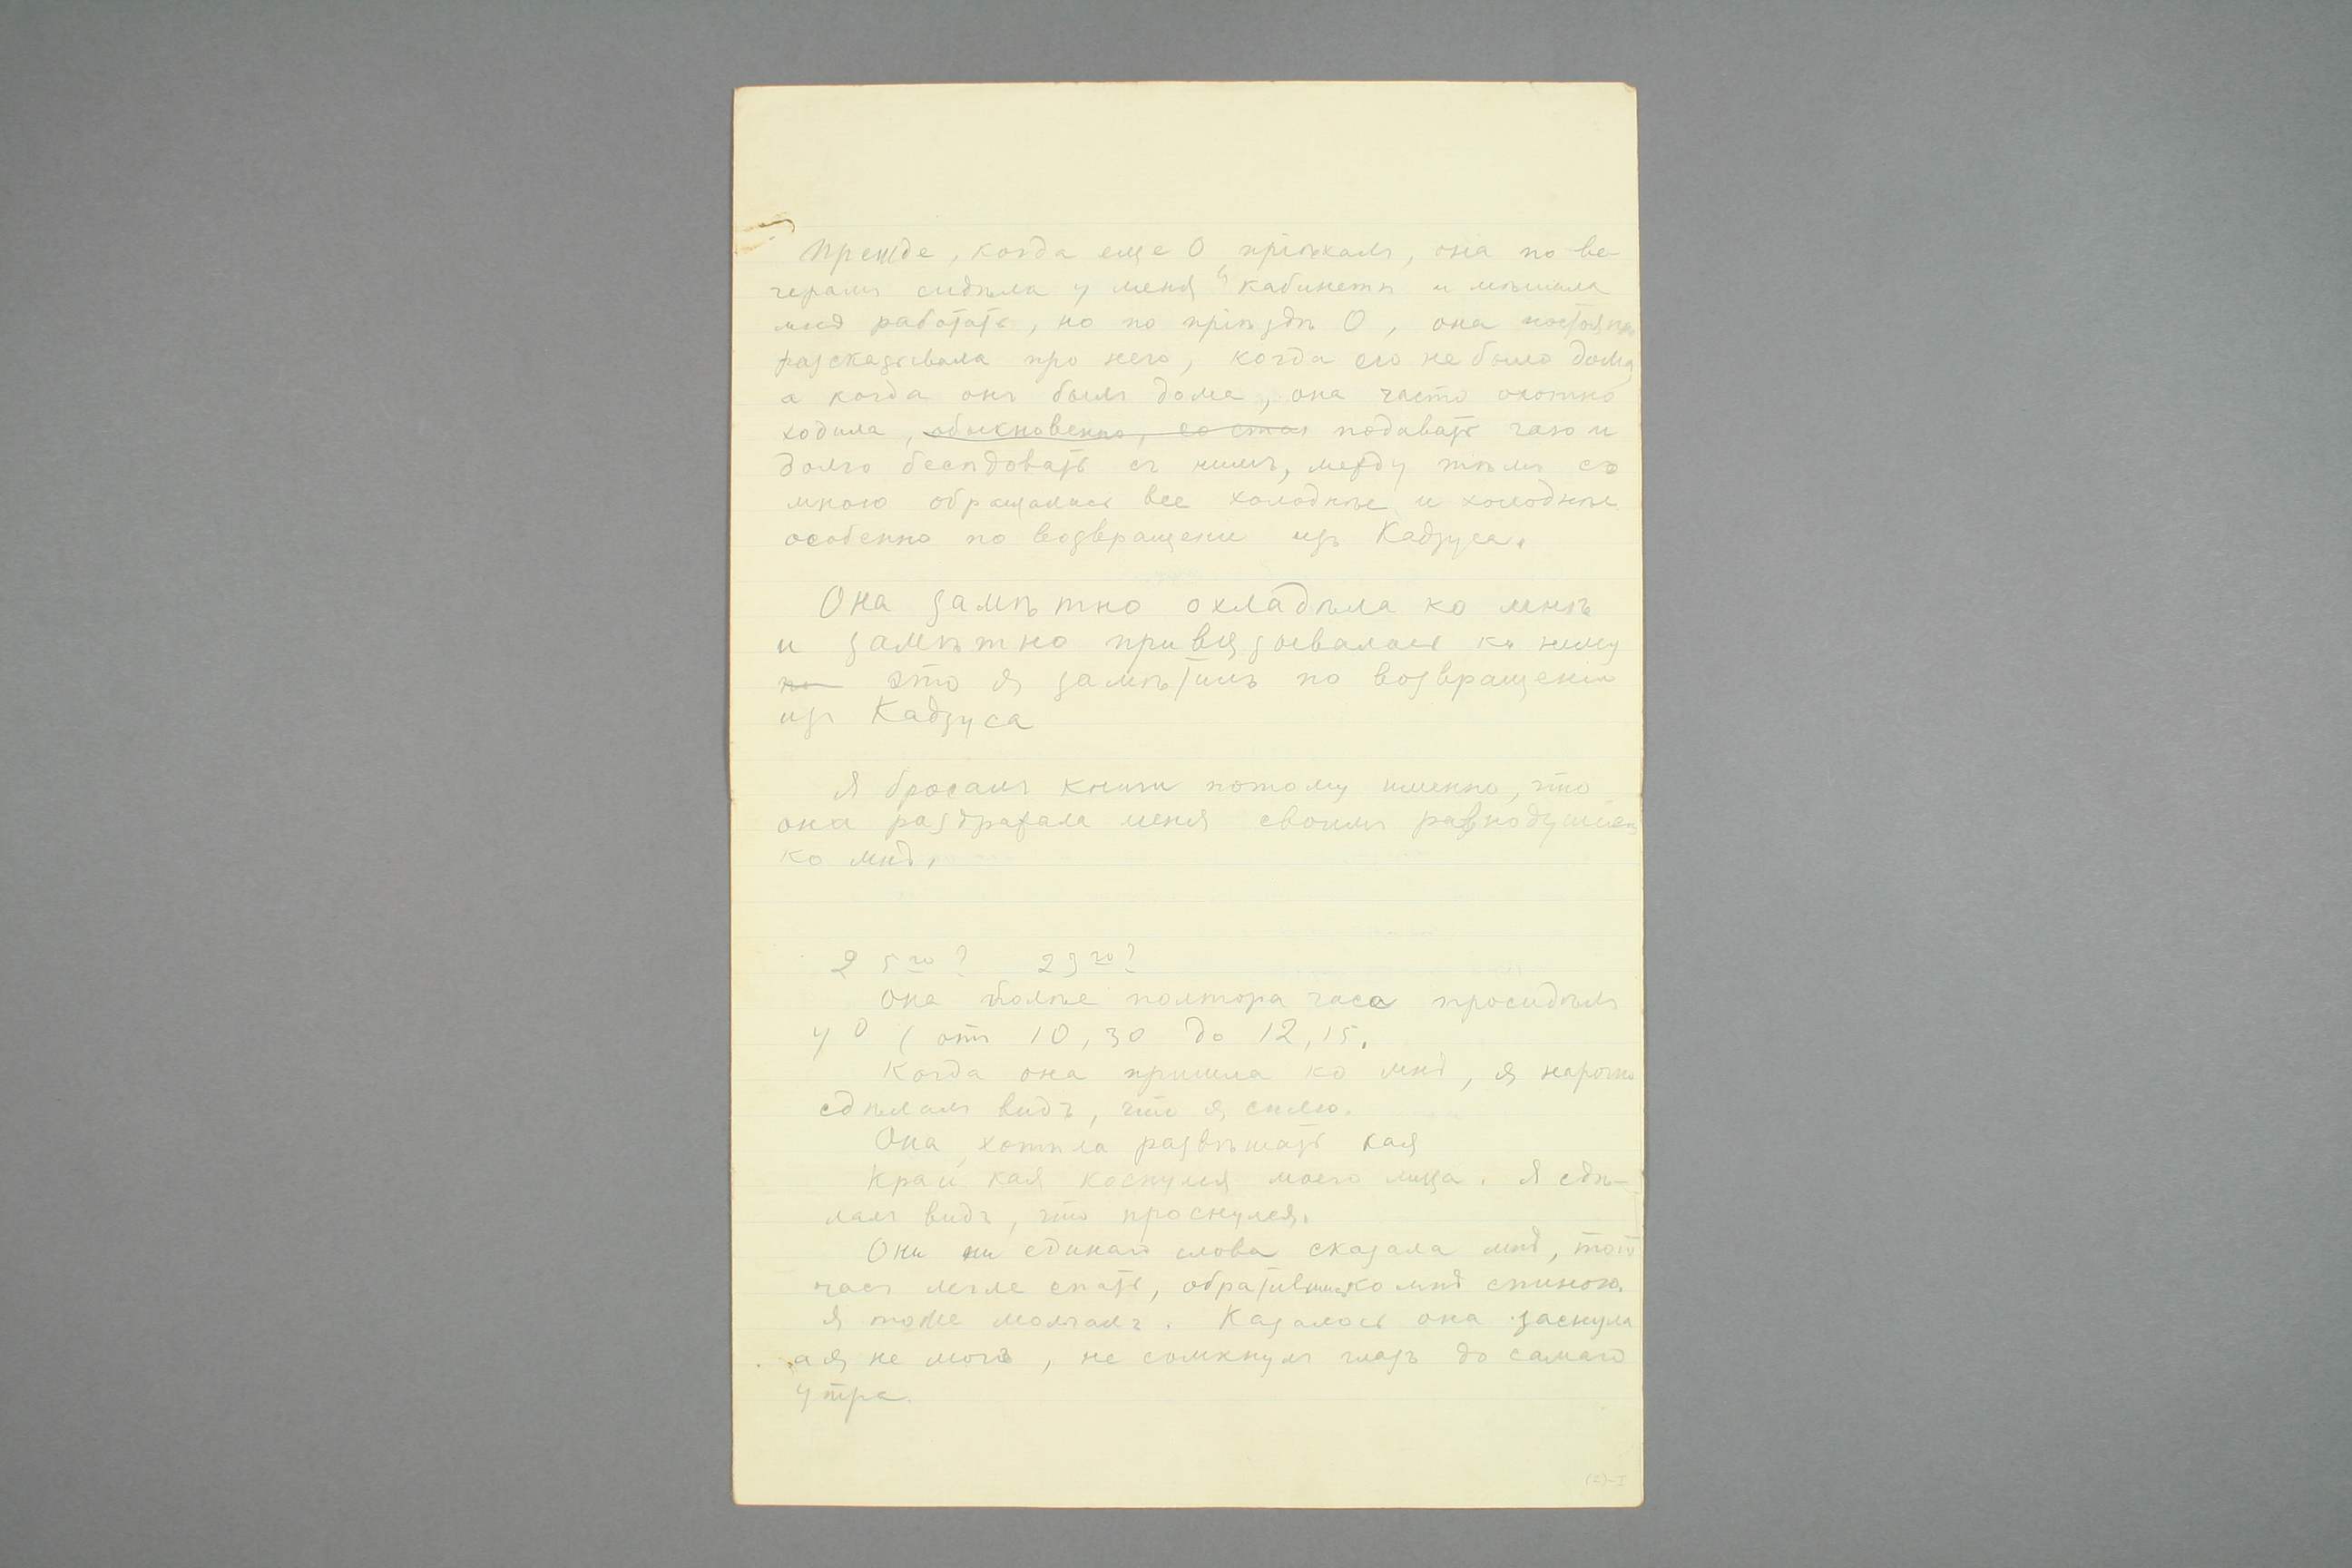 Прежде, когда еще О пріѣхалъ, она по ве-
черамъ сидѣла у меня въ кабинетѣ и мѣшала
мнѣ работать, но по пріѣздѣ О, она постоянно
разсказывала про него, когда его не было дома,
а когда онъ былъ дома, она часто охотно
ходила, обыкновенно, со стак подавать чаю и
долго бесѣдовать съ нимъ, между тѣмъ со
мною обращалась все холоднѣе и холоднѣе
особенно по возвращени изъ Кадзуса.
Она замѣтно охладѣла ко мнѣ
и замѣтно привязывалась къ нему
по это я замѣтилъ по возвращени
изъ Кадзуса
Я бросалъ книги потому именно, что
она раздражала меня своимъ равнодушіемъ
ко мнѣ.
25го? 23го?
Она болѣе полтора часа просидѣла
у О (отъ 10,30 до 12,15.
Когда она пришла ко мнѣ, я нарочно
сдѣлалъ видъ, что я сплю.
Она хотѣла развѣшать кая
Край кая коснулся моего лица. Я сдѣ-
лалъ видъ, что проснулся.
Она ни единаго слова сказала мнѣ, тотъ
часъ легла спать, обратившись ко мнѣ спиною.
Я тоже молчалъ. Казалось она заснула
а я не могъ, не сомкнулъ глазъ до самаго
утра.
(2)-I